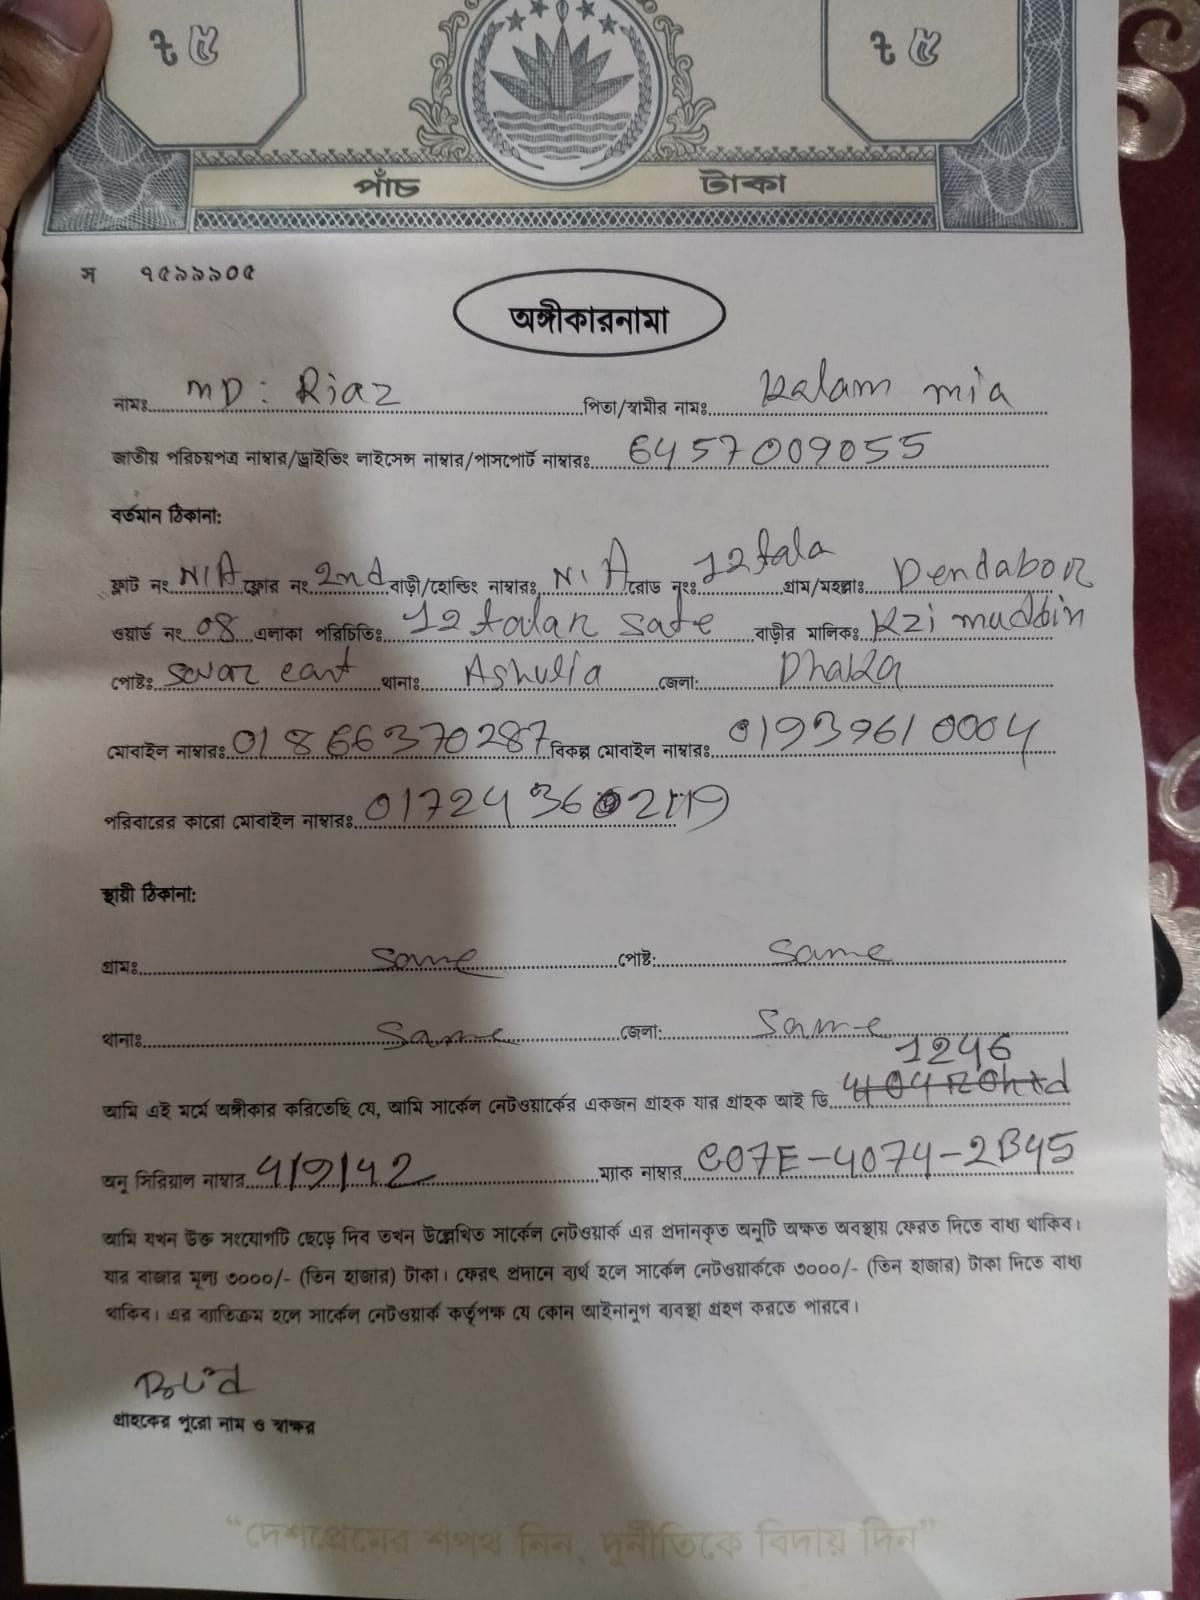 ৳ ৫ ৳ ৫
পাঁচ টাকা
স ৭৫৯৯৯০৫
অঙ্গীকারনামা
নামঃ MD: Riaz পিতা/স্বামীর নামঃ Kalam mia
জাতীয় পরিচয়পত্র নাম্বার/ড্রাইভিং লাইসেন্স নাম্বার/পাসপোর্ট নাম্বারঃ 6457009055
বর্তমান ঠিকানা:
ফ্লাট নং N/A ফ্লোর নং 2nd বাড়ী/হোল্ডিং নাম্বারঃ N/A রোড নংঃ 12 tala গ্রাম/মহল্লাঃ Dendabor
ওয়ার্ড নং 08 এলাকা পরিচিতিঃ 12 talar sate বাড়ীর মালিকঃ Kzi muddin
পোষ্টঃ Savar cant থানাঃ Ashulia জেলা: Dhaka
মোবাইল নাম্বারঃ 01866370287 বিকল্প মোবাইল নাম্বারঃ 01939610004
পরিবারের কারো মোবাইল নাম্বারঃ
স্থায়ী ঠিকানা:
গ্রামঃ same পোষ্ট: same
থানাঃ same জেলা: same
1246
আমি এই মর্মে অঙ্গীকার করিতেছি যে, আমি সার্কেল নেটওয়ার্কের একজন গ্রাহক যার গ্রাহক আই ডি
অনু সিরিয়াল নাম্বার 4/9/42 ম্যাক নাম্বার C07E-4074-2B45
আমি যখন উক্ত সংযোগটি ছেড়ে দিব তখন উল্লেখিত সার্কেল নেটওয়ার্ক এর প্রদানকৃত অনুটি অক্ষত অবস্থায় ফেরত দিতে বাধ্য থাকিব।
যার বাজার মূল্য ৩০০০/- (তিন হাজার) টাকা। ফেরৎ প্রদানে ব্যর্থ হলে সার্কেল নেটওয়ার্ককে ৩০০০/- (তিন হাজার) টাকা দিতে বাধ্য
থাকিব। এর ব্যতিক্রম হলে সার্কেল নেটওয়ার্ক কর্তৃপক্ষ যে কোন আইনানুগ ব্যবস্থা গ্রহণ করতে পারবে।
গ্রাহকের পুরো নাম ও স্বাক্ষর
“দেশপ্রেমের শপথ নিন, দুর্নীতিকে বিদায় দিন”